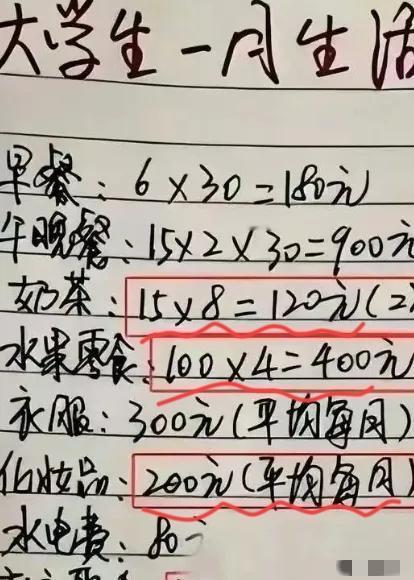 大学生一月生活
早餐：6×30=180元
午晚餐：15×2×30=900元
奶茶：15×8=120元(2
水果零食：100×4=400元
衣服：300元(平均每月)
化妆品：200元(平均每月)
水电费：80